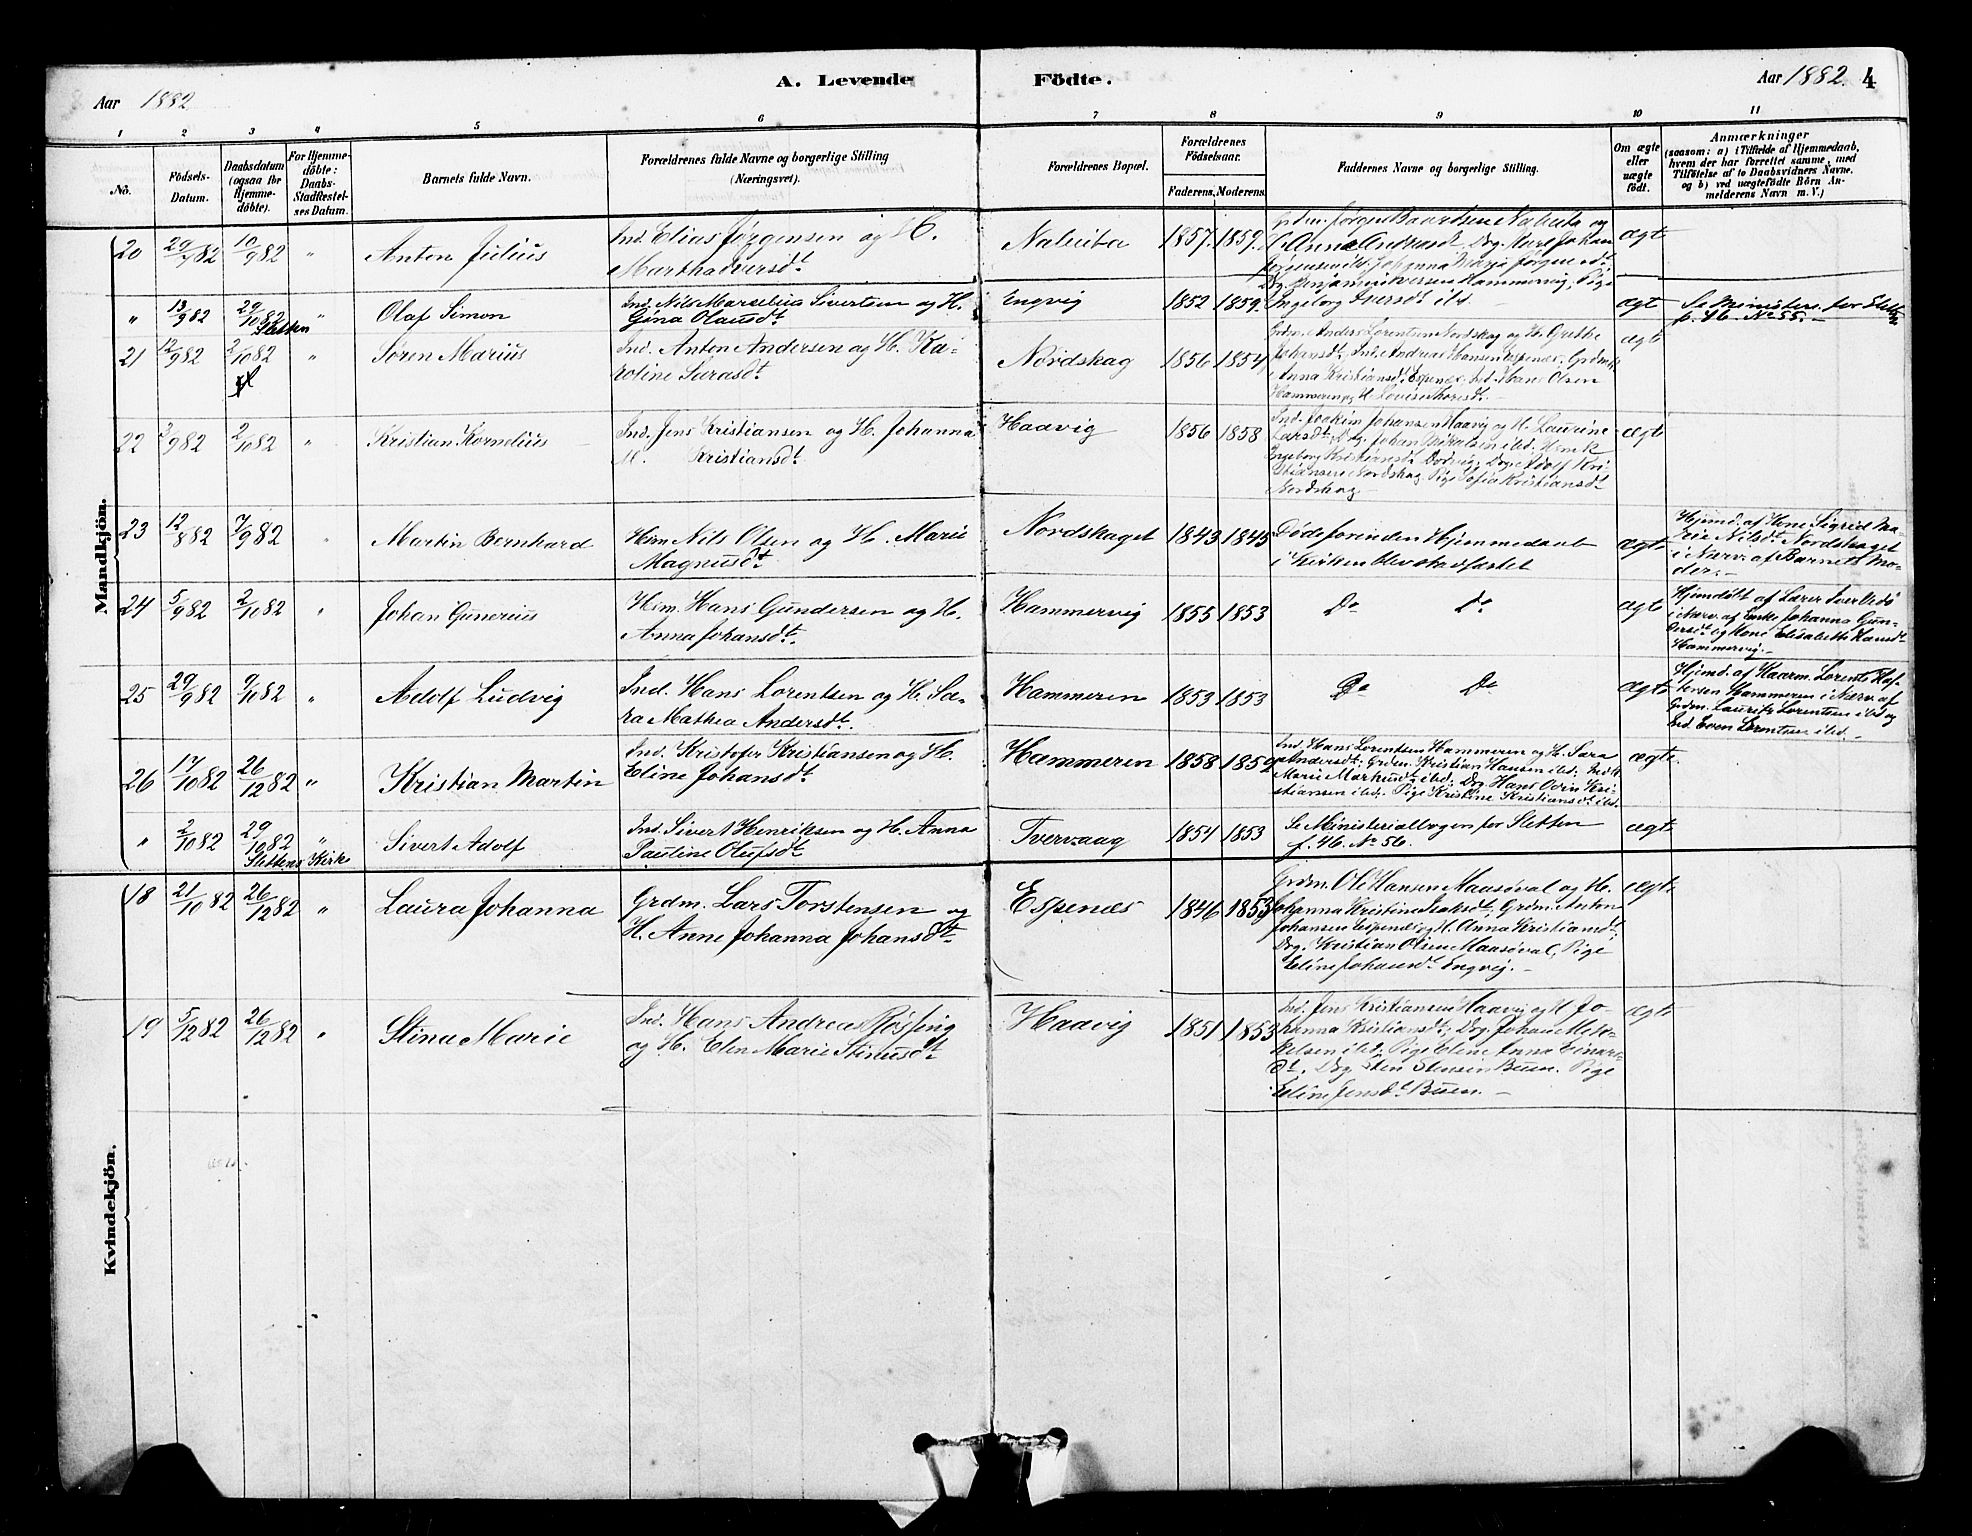 Aar 1882
A. Levende
Födte.
Aar 1882. 4
1 2 3 4 5 6 7 8 9 10 11
No.
Födsels-
Datum.
Daabsdatum
(ogsaa for
Hjemme-
döbte).
For Hjemme-
döbte:
Daabs-
Stadfæstel-
ses Datum.
Barnets fulde Navn.
Forældrenes fulde Navne og borgerlige Stilling
(Næringsvei).
Forældrenes Bopæl.
Forældrenes
Födselsaar.
Faderens. Moderens.
Faddernes Navne og borgerlige Stilling.
Om ægte
eller
uægte
födt.
Anmærkninger
(saasom: a) i Tilfælde af Hjemmedaab,
hvem der har forrettet samme, med
Tilföielse af to Daabsvidners Navne,
og b) ved uægtefödte Börn An-
melderens Navn m. V.)
Mandkjön.
20 29/7 82 10/9 82 " Anton Julius
Ind. Elias Jørgensen og H.
Martha Iversdt.
1857. 1859.
Grdm. Jørgen Baardsen og
H. Anna Andreasdt. Drg. Karl Johan
Jørgensen ibd. Johanna Maria Jørgensdt.
Drg. Benjamin Iversen Hammervig, Pige
Ingeborg Iversdt ibd.
ægt
" 13/9 82 29/10 82 Sletten " Olaf Simon
Ind. Nils Marselius Sivertsen og H.
Gina Olausdt.
Engvig 1852 1859.
ægt
Se Ministerb. for Sletten
p. 46. No 55. —
21 12/9 82 2/10 82 " Søren Marius
Ind. Anton Andersen og H. Ka-
roline Sarasdt.
Nordskag 1856 1854
Grdm. Anders Lorentsen Nordskag og H. Grethe
Johansdt, Ind. Andreas Hansen Espenæs, Grdmk.
Anna Kristiansdt. Espenæs, Ind. Hans Olsen
Hammeren og H. Lovise Thoresdt. —
ægt
22 2/9 82 2/10 82 " Kristian Kornelius
Ind. Jens Kristiansen og H. Johanna
M. Kristiansdt.
Haavig 1856 1858
Ind. Joakim Johansen Haavig og H. Laurine
Larsdt, Drg. Johan Mikalsen ibd.
Ingeborg Kristiansdt. Drg. Adolf Kri-
stiansen Nordskag, Pige Sofie Kristiansdt
Nordskag —
ægt
23 12/8 82 7/9 82 " Martin Bernhard
Hsm. Nils Olsen og H. Marie
Magnusdt.
Nordskaget 1843 1845
Døde forinden Hjemmedaab
i Kirken blev stadfæstet
ægt
Hjemd. af Kone Sigrid Ma-
rie Nilsdt. Nordskaget
i Nærv. af Barnets Mo-
der. —
24 5/9 82 2/10 82 " Johan Gunerius
Hsm. Hans Gundersen og H.
Anna Johansdt.
Hammervig 1855 1853
Do Do
ægt
Hjemdøbt af Lærer Iver
i Nærv. af Enke Johanna Gun-
dersdt. og Kone Elisabeth Hansdt.
Hammervig. —
25 29/9 82 9/10 82 " Adolf Ludvig
Ind. Hans Lorentsen og H. Sa-
ra Mathea Andersdt.
Hammeren 1853 1853
Do Do
ægt
Hjemd. af Kaarm. Lorents
Hammeren i Nærv. af
Grdm. Laurits Lorentsen ibd og
Ind. Even Lorentsen ibd. —
26 17/10 82 26/12 82 " Kristian Martin
Ind. Kristofer Kristiansen og H.
Eline Johansdt.
Hammeren 1858 1859
Ind. Hans Lorentsen Hammeren og H. Sara
Andersdt; Grdm. Kristian Hansen ibd;
Marie Markusdt ibd; Drg. Hans Odin Kri-
stiansen ibd. Pige Kristine Kristiansdt ibd.
ægt.
" 2/10 82 29/10 82 Slettens Kirke " Sivert Adolf
Ind. Sivert Henriksen og H. Anna
Pauline Olufsdt.
Tvervaag 1854 1853
Se Ministerialbogen for Sletten
p. 46. No 56.
ægt.
Kvindekjön.
18 21/10 82 26/12 82 " Laura Johanna
Grdm. Lars Torstensen og
H. Anne Johanna Johansdt.
Espenæs 1846 1853
Grdm. Ole Hansen Maasøval og H.
Johanna Kristine Isaksdt; Grdm. Anton
Johansen Espenæs og H. Anna Kristiansdt;
Drg. Kristian Olsen Maasøval, Pige
Eline Johansdt. Engvig. —
ægt.
19 5/12 82 26/12 82 " Stina Marie
Ind. Hans Andreas Røsting
og H. Elen Marie Stinusdt.
Haavig 1851 1853
Ind. Jens Kristiansen Haavig og H. Jo-
hanna Kristiansdt; Drg. Johan Mik-
kelsen ibd. Pige Eline Anna Einars-
dt, Drg. Sten Stensen Buen. Pige
Eline Jensdt. Buen. —
ægt.